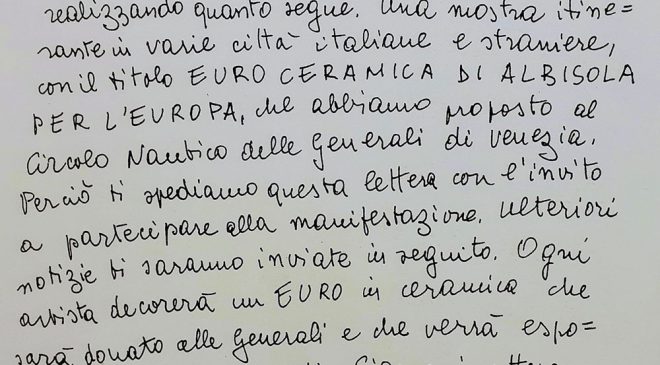 realizzando quanto segue. Una mostra itine=
rante in varie città italiane e straniere,
con il titolo EURO CERAMICA DI ALBISOLA
PER L'EUROPA, che abbiamo proposto al
Circolo Nautico delle Generali di Venezia.
Perciò ti spediamo questa lettera con l'invito
a partecipare alla manifestazione. Ulteriori
notizie ti saranno inviate in seguito. Ogni
artista decorerà un EURO in ceramica che
sarà donato alle Generali e che verrà espo=